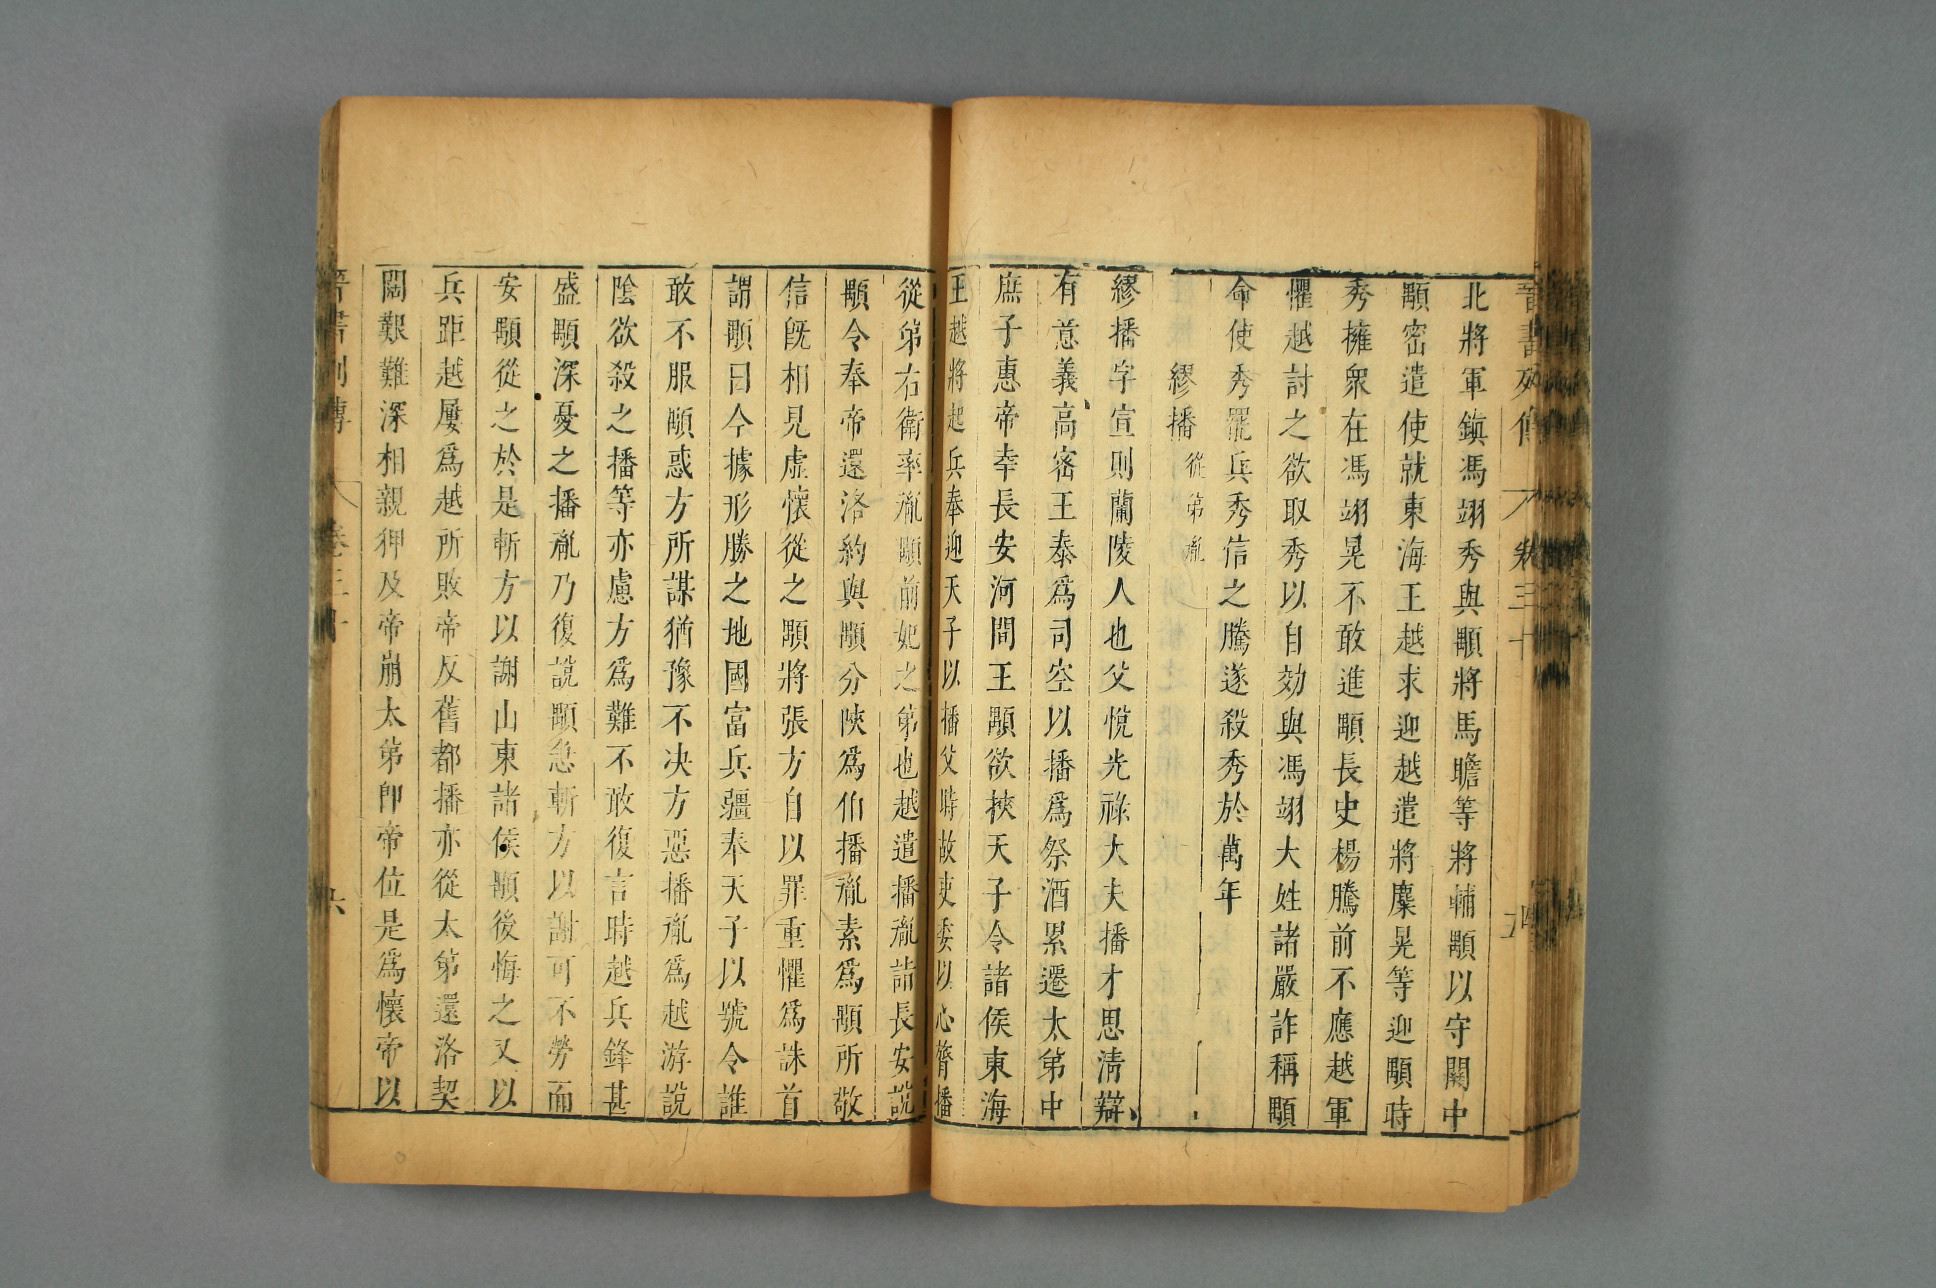 晉書列傳 卷三十 五
北將軍鎮馮翊秀與顒將馬瞻等將輔顒以守關中
顒密遣使就東海王越求迎越遣將麋晃等迎顒時
秀擁衆在馮翊晃不敢進顒長史楊騰前不應越軍
懼越討之欲取秀以自効與馮翊大姓諸嚴詐稱顒
命使秀罷兵秀信之騰遂殺秀於萬年
繆播 從弟胤
繆播字宣則蘭陵人也父悅光祿大夫播才思淸辯
有意義高密王泰爲司空以播爲祭酒累遷太弟中
庶子惠帝幸長安河間王顒欲挾天子令諸侯東海
王越將起兵奉迎天子以播父時故吏委以心膂播
從弟右衛率胤顒前妃之弟也越遣播胤詣長安說
顒令奉帝還洛約與顒分陝爲伯播胤素爲顒所敬
信旣相見虛懷從之顒將張方自以罪重懼爲誅首
謂顒曰今據形勝之地國富兵彊奉天子以號令誰
敢不服顒惑方所謀猶豫不决方惡播胤爲越游說
陰欲殺之播等亦慮方爲難不敢復言時越兵鋒甚
盛顒深憂之播胤乃復說顒急斬方以謝可不勞而
安顒從之於是斬方以謝山東諸侯顒後悔之又以
兵距越屢爲越所敗帝反舊都播亦從太弟還洛契
闊艱難深相親狎及帝崩太弟卽帝位是爲懷帝以
晉書列傳 卷三十 六